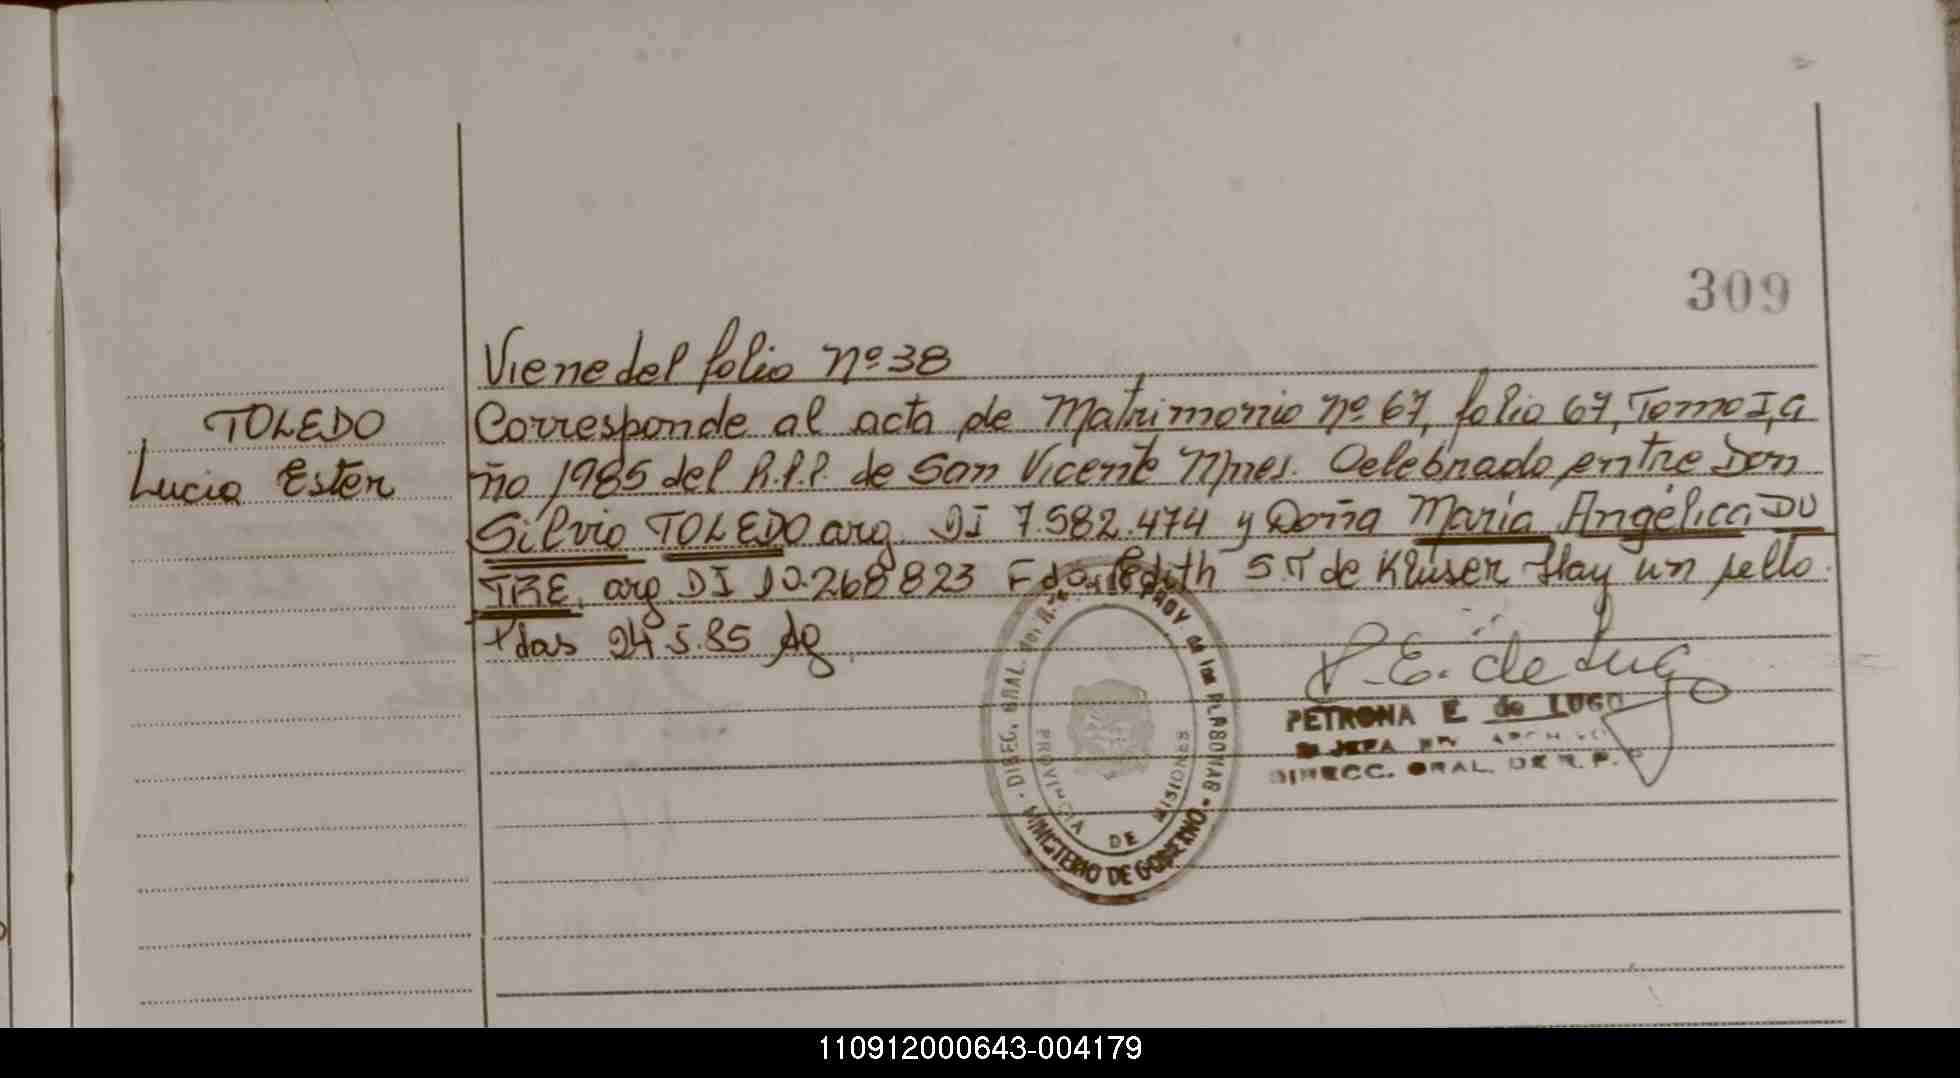 309
Viene del folio nº 38
TOLEDO
Lucia Ester
Corresponde al acta de Matrimonio nº 67, folio 67, Tomo I, a
ño 1985 del R.P.P. de San Vicente Mnes. Celebrado entre Don
Silvio TOLEDO arg. DI 7.582.474 y Doña María Angélica DU
TRE, arg DI 10.268823 Fdo. Edith S.T de Kluser Hay un sello.
+das 24.5.85 Ag
P. E. de Lugo
PETRONA E de LUGO
JEFA ARCHIVO
DIRECC. GRAL. DE R. P.
DIREC. GRAL. PROV de las PERSONAS
PROVINCIA DE MISIONES
MINISTERIO DE GOBIERNO
110912000643-004179